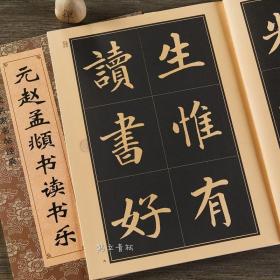 生惟有
讀書好
元赵孟頫书读书乐